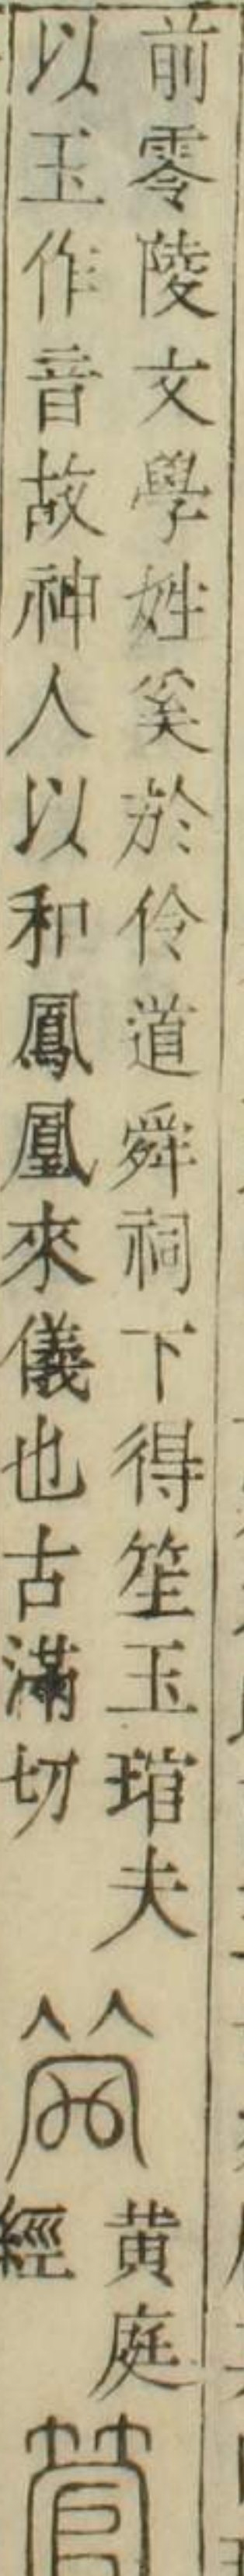 前零陵文學姓奚於伶道舜祠下得笙玉琯夫
以玉作音故神人以和鳳凰來儀也古滿切
黄庭
經